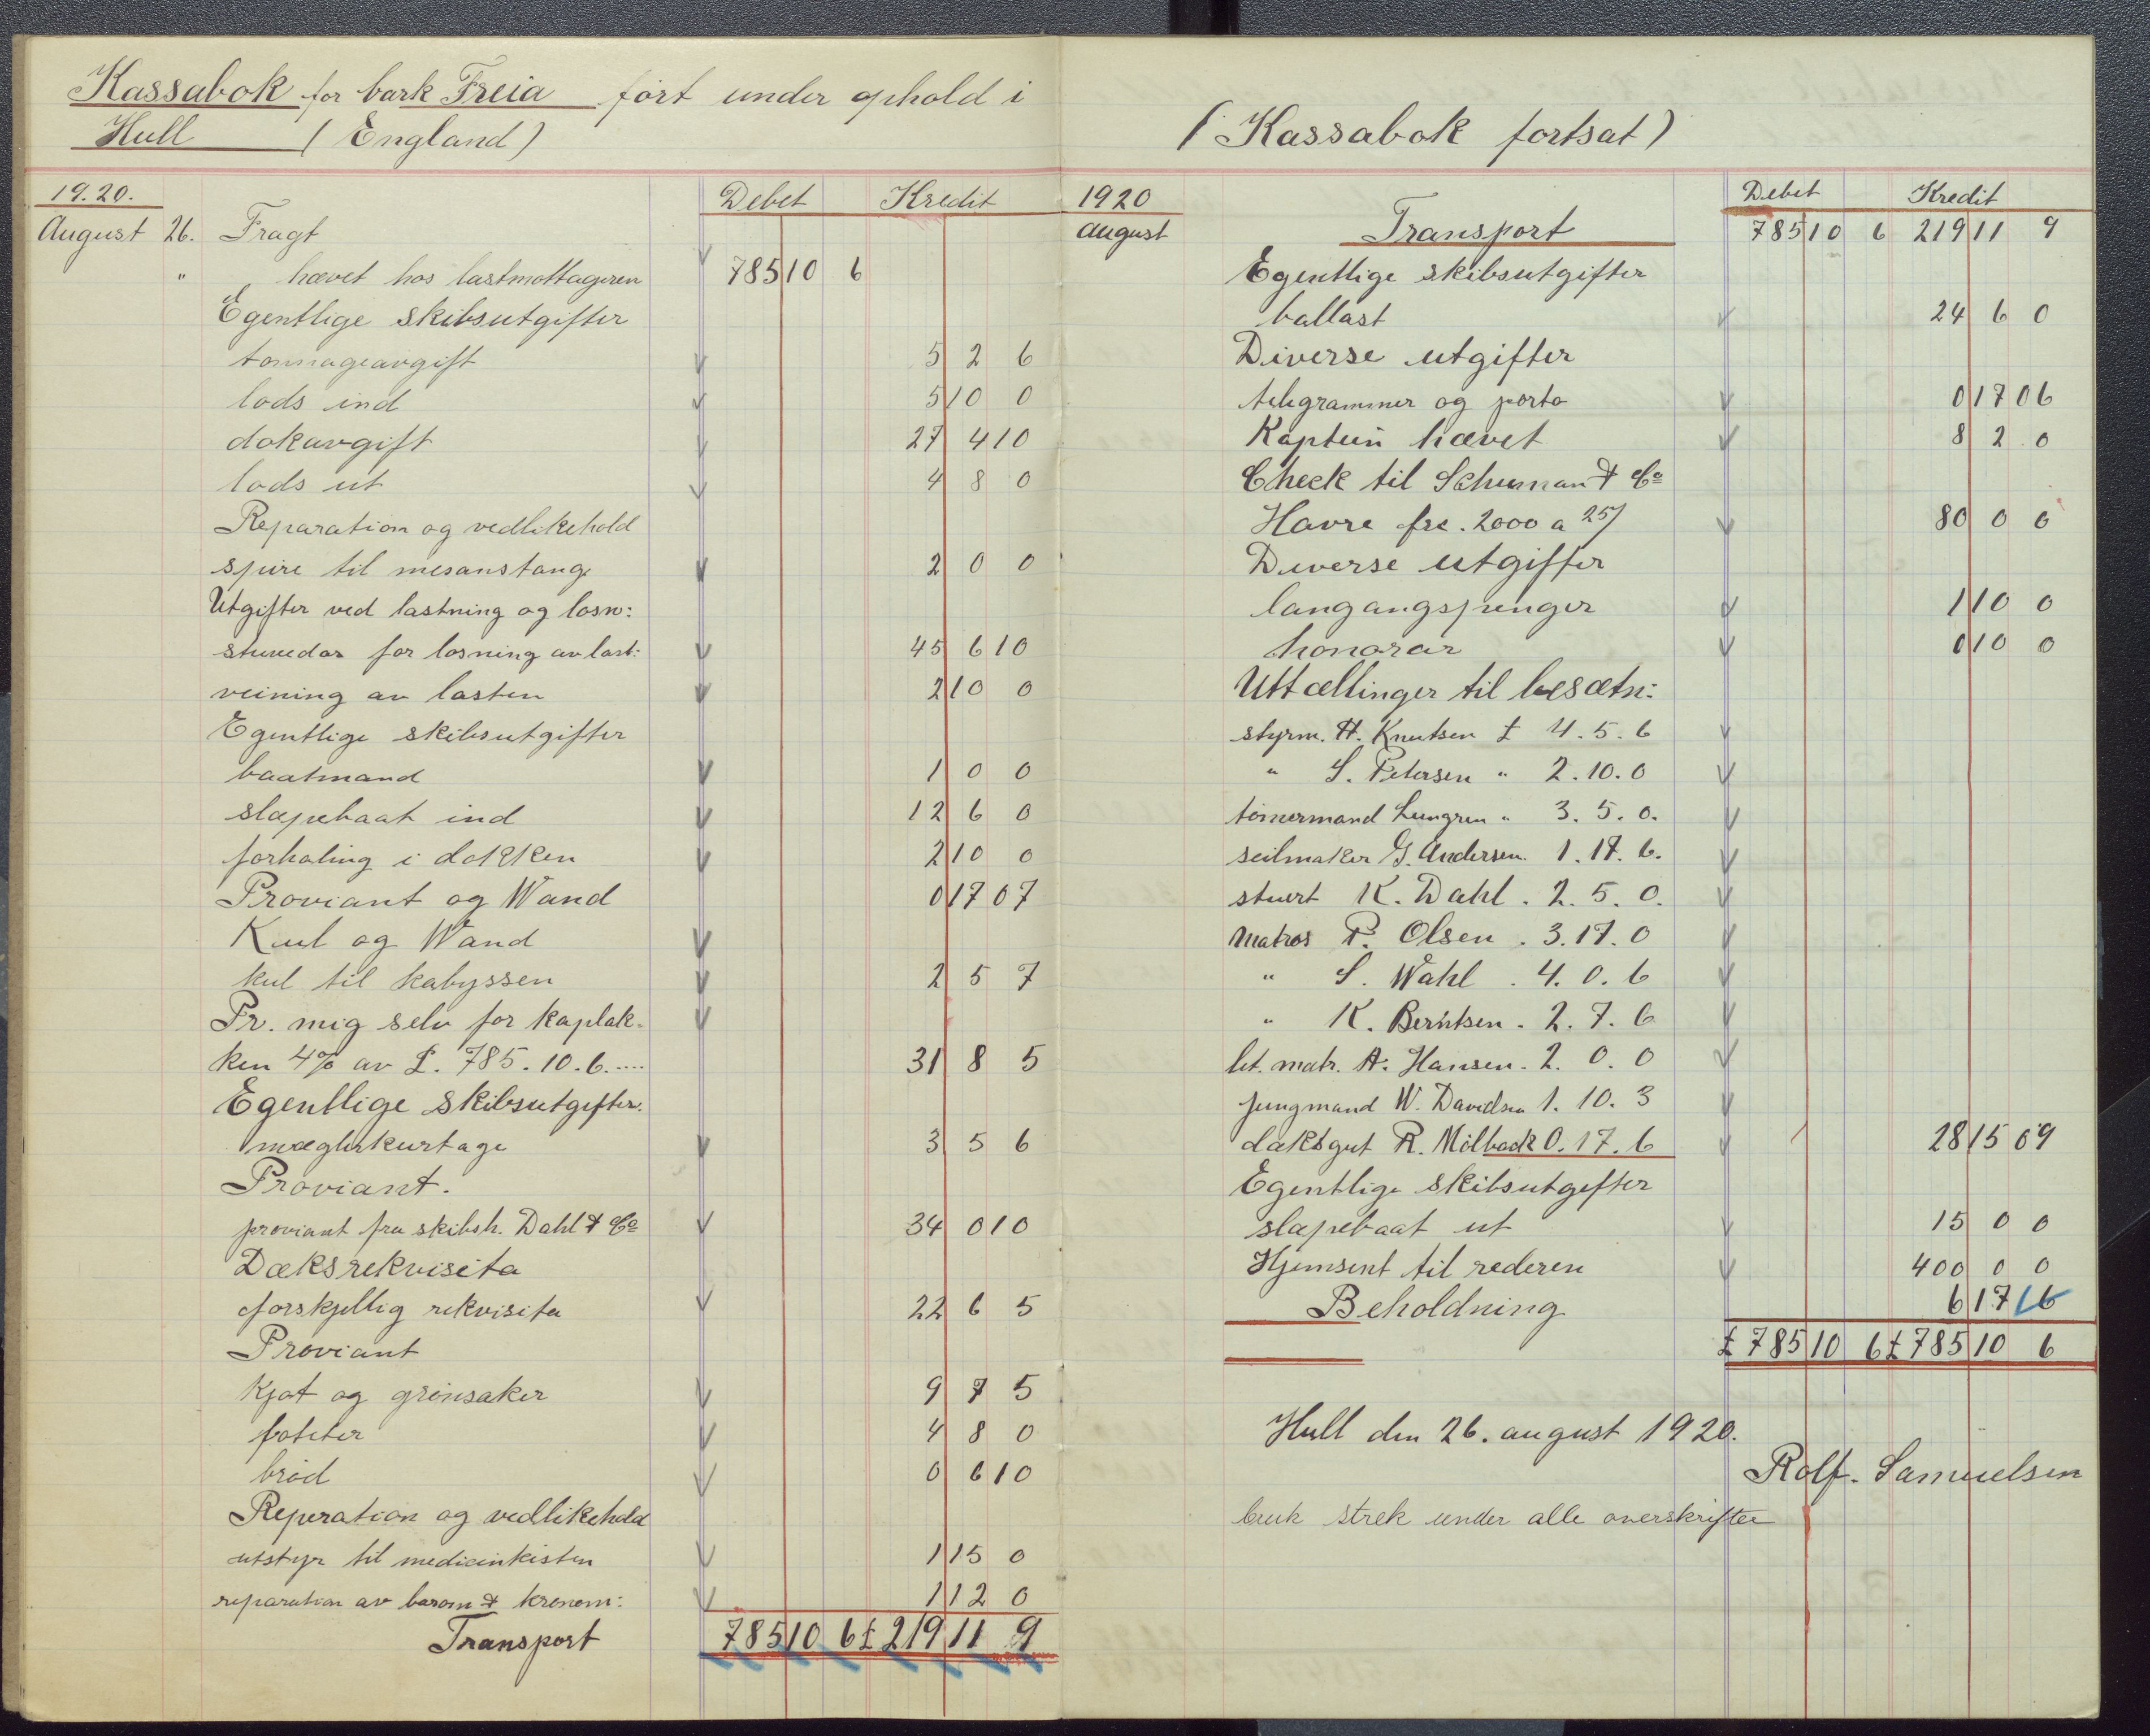 Kassabok for bark Freia ført under ophold i
Hull (England)
19.20. Debet Kredit
August 26. Fragt
" hævet hos lastmottageren 785 10 6
Egentlige skibsutgifter
tonnageavgift 5 2 6
lods ind 5 10 0
dokavgift 27 4 10
lods ut 4 8 0
Reparation og vedlikehold
spire til mesanstang 2 0 0
Utgifter ved lastning og losn:
stuvedor for losning av last: 45 6 10
veining av lasten 2 10 0
Egentlige skibsutgifter
baatmand 1 0 0
slæpebaat ind 12 6 0
forhaling i dokken 2 10 0
Proviant og Wand 0 17 07
Kul og Wand
kul til kabyssen 2 5 7
Pr. mig selv for kaplak-
ken 4% av £. 785.10.6.....
31 8 5
Egentlige skibsutgifter.
mæglerkurtage 3 5 6
Proviant.
proviant fra skibsh. Dahl & Co 34 0 10
Dæksrekvisita
forskjellig rekvisita 22 6 5
Proviant
Kjøt og grønsaker 9 7 5
poteter 4 8 0
brød 0 6 10
Reperation og vedlikehold
utstyr til medicinkisten 1 15 0
reparation av barom & kronom: 1 12 0
Transport 785 10 6 £ 219 11 9
(Kassabok fortsat)
1920 Debet Kredit
august Transport 785 10 6 219 11 9
Egentlige skibsutgifter
ballast 24 6 0
Diverse utgifter
telegrammer og porto 0 17 06
Kaptein hævet 8 2 0
Check til Schuman & Co
Havre frc. 2000 a 25/ 80 0 0
Diverse utgifter
langangspenger 1 10 0
honorar 0 10 0
Uttællinger til besætn:
styrm. H. Knutsen £ 4.5.6
" S. Petersen " 2.10.0
tømermand Lungren " 3.5.0.
seilmaker G. Andersen. 1.17.6.
stuert K. Dahl . 2.5.0.
Matros P. Olsen . 3.17.0
" S. Wahl . 4.0.6
" K. Berntsen . 2.7.6
let. matr. A. Hansen . 2.0.0
jungmand W. Davidsen 1.10.3
daksgut R. Mølback 0.17.6 28 15 09
Egentlige skibsutgifter
slæpebaat ut 15 0 0
Hjemsent til rederen 400 0 0
Beholdning 6 17 6
£ 785 10 6 £ 785 10 6
Hull den 26. august 1920.
Rolf. Samuelsen
bruk strek under alle overskrifter